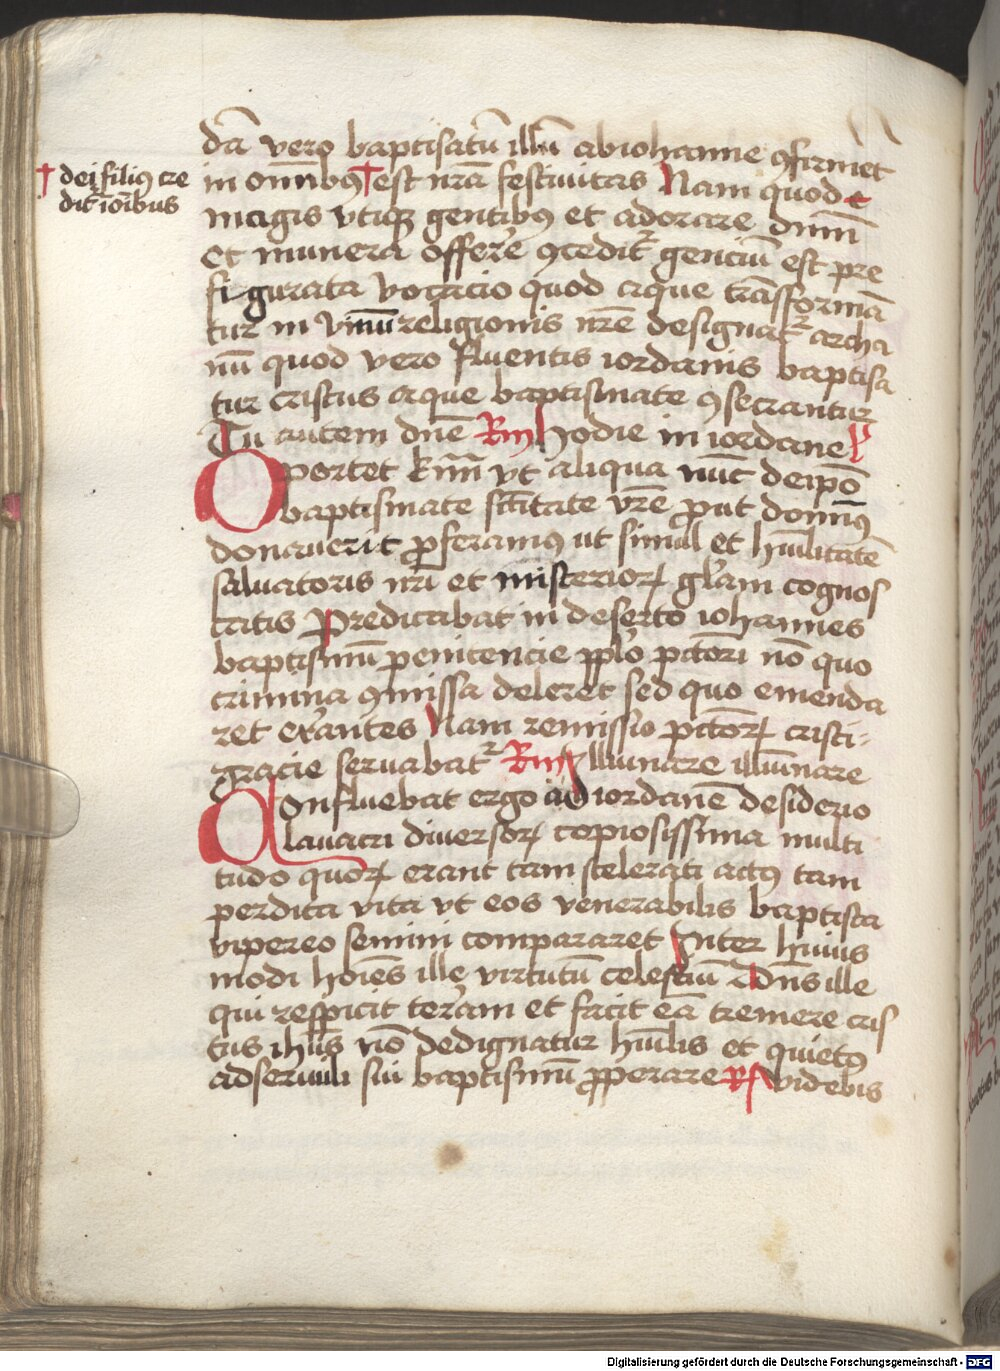 † dei filiꝯ cre
dit̄ ioībus
dā vero baptisatū illū abiohanne ꝯfirmet
in om̄ibꝯ † est nr̄a festiuitas Nam quod e
magis vtiqꝫ gentibꝯ et adorare dn̄m
et munera offerre ꝯcedit᷑ genciū est pre
figurata vocacio quod aque trāsformā
tur in vinū religionis nr̄e designat᷑ archa
nū quod vero fluentis iordanis baptisa
tur cristus aque baptismate ꝯsecrantur
Tu autem dn̄e Rm̄ hodie in iordane
Oportet kr̄mi vt aliqua nūc de ip̄o
baptismate sc̄titate vr̄e ꝓut domīꝯ
donauerit ꝓferamꝯ ut simul et hūilitatē
saluatoris nr̄i et misterioꝝ glām cognos
catis Predicabat in deserto iohannes
baptismū penitencie pplo pctōri nō quo
crimina ꝯmissa deleret sed quo emenda
ret errantes Nam remissio pctōꝝ cristi
gracie seruabat᷑ Rm̄ Illūinare illūinare
Confluebat ergo ad iordanē desiderio
lauacri diuersoꝝ copiosissima multi
tudo quoꝝ erant tam scelerati actꝯ tam
perdita vita vt eos venerabilis baptista
vipereo semini compararet Inter huius
modi hoīes ille virtutū celestiū Dn̄s ille
qui respicit terram et facit eā tremere cris
tus ihūs nō dedignatur hūilis et quietꝯ
ad seruuli sui baptismū ꝓperare videbis
Digitalisierung gefördert durch die Deutsche Forschungsgemeinschaft - DFG